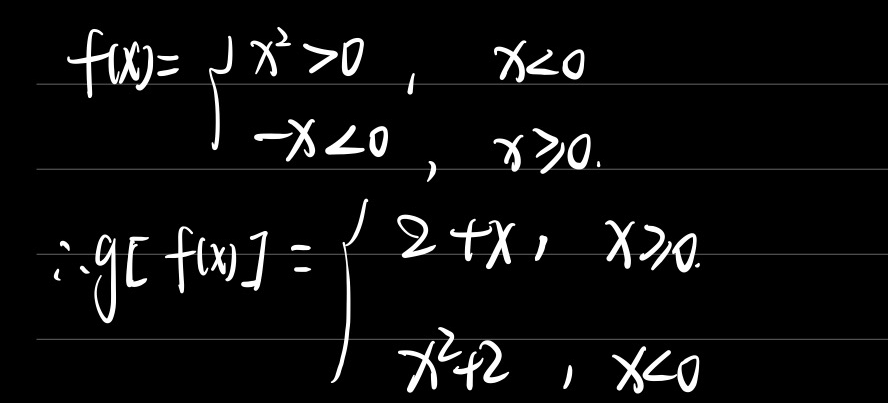 f(x)= { x²>0 , x<0
-x<0 , x⩾0.
∴g[f(x)] = { 2+x, x⩾0.
x²+2 , x<0